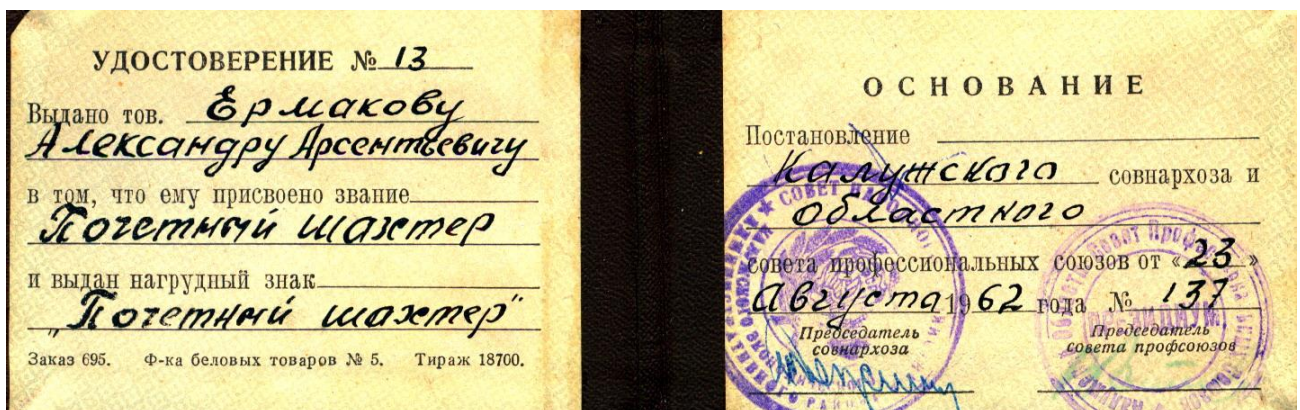 УДОСТОВЕРЕНИЕ № 13
Выдано тов. Ермакову
Александру Арсентьевичу
в том, что ему присвоено звание
Почетный шахтер
и выдан нагрудный знак
„Почетный шахтер"
Заказ 695. Ф-ка беловых товаров № 5. Тираж 18700.
ОСНОВАНИЕ
Постановление
Калужского совнархоза и
областного
совета профессиональных союзов от «23»
Августа 1962 года № 137
Председатель
совнархоза
Председатель
совета профсоюзов
СОВЕТ